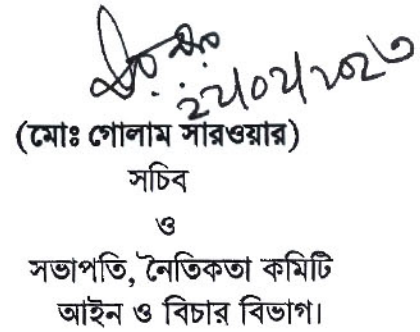 (মোঃ গোলাম সারওয়ার)
সচিব
ও
সভাপতি, নৈতিকতা কমিটি
আইন ও বিচার বিভাগ।